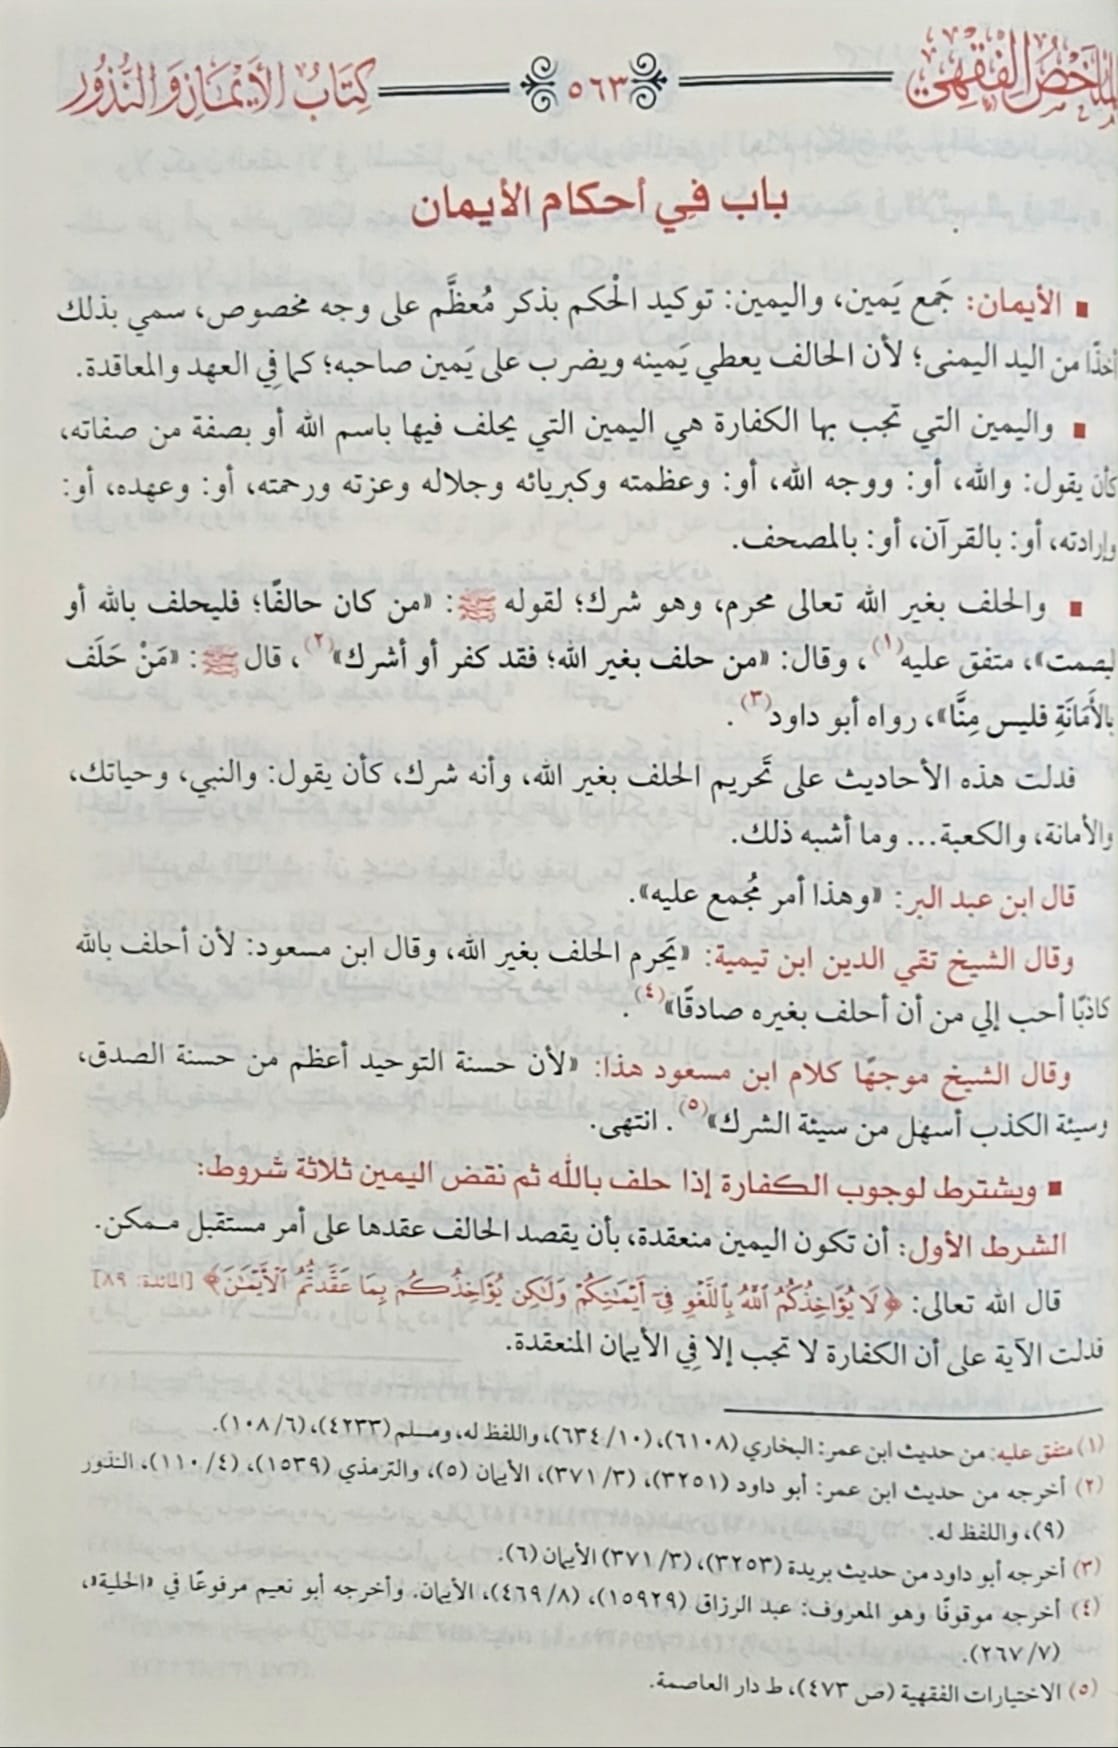 الملخص الفقهي ٥٦٣ كتاب الأيمان والنذور
باب في أحكام الأيمان
▪ الأيمان: جَمع يَمين، واليمين: توكيد الْحكم بذكر مُعظَّم على وجه مخصوص، سمي بذلك
أخذًا من اليد اليمنى؛ لأن الحالف يعطي يَمينه ويضرب على يَمين صاحبه؛ كما فِي العهد والمعاقدة.
▪ واليمين التي تجب بها الكفارة هي اليمين التي يحلف فيها باسم الله أو بصفة من صفاته،
كأن يقول: والله، أو: ووجه الله، أو: وعظمته وكبريائه وجلاله وعزته ورحمته، أو: وعهده، أو:
وإرادته، أو: بالقرآن، أو: بالمصحف.
▪ والحلف بغير الله تعالى محرم، وهو شرك؛ لقوله ﷺ: «من كان حالفًا؛ فليحلف بالله أو
ليصمت»، متفق عليه(١)، وقال: «من حلف بغير الله؛ فقد كفر أو أشرك»(٢)، قال ﷺ: «مَنْ حَلَف
بالأَمَانَةِ فليس مِنَّا»، رواه أبو داود(٣).
فدلت هذه الأحاديث على تَحريم الحلف بغير الله، وأنه شرك، كأن يقول: والنبي، وحياتك،
والأمانة، والكعبة... وما أشبه ذلك.
قال ابن عبد البر: «وهذا أمر مُجمع عليه».
وقال الشيخ تقي الدين ابن تيمية: «يَحرم الحلف بغير الله، وقال ابن مسعود: لأن أحلف بالله
كاذبًا أحب إلي من أن أحلف بغيره صادقًا»(٤).
وقال الشيخ موجهًا كلام ابن مسعود هذا: «لأن حسنة التوحيد أعظم من حسنة الصدق،
وسيئة الكذب أسهل من سيئة الشرك»(٥). انتهى.
▪ ويشترط لوجوب الكفارة إذا حلف بالله ثم نقض اليمين ثلاثة شروط:
الشرط الأول: أن تكون اليمين منعقدة، بأن يقصد الحالف عقدها على أمر مستقبل مـمكن.
قال الله تعالى: ﴿لَا يُؤَاخِذُكُمُ ٱللَّهُ بِٱللَّغْوِ فِىٓ أَيْمَـٰنِكُمْ وَلَـٰكِن يُؤَاخِذُكُم بِمَا عَقَّدتُّمُ ٱلْأَيْمَـٰنَ﴾ [المائدة: ٨٩]
فدلت الآية على أن الكفارة لا تجب إلا فِي الأيمان المنعقدة.
(١) متفق عليه: من حديث ابن عمر: البخاري (٦١٠٨)، (١٠/ ٦٣٤)، واللفظ له، ومسلم (٤٢٣٣)، (٦/ ١٠٨).
(٢) أخرجه من حديث ابن عمر: أبو داود (٣٢٥١)، (٣/ ٣٧١)، الأيمان (٥)، والترمذي (١٥٣٩)، (٤/ ١١٠)، النذور
(٩)، واللفظ له.
(٣) أخرجه أبو داود من حديث بريدة (٣٢٥٣)، (٣/ ٣٧١) الأيمان (٦).
(٤) أخرجه موقوفًا وهو المعروف: عبد الرزاق (١٥٩٢٩)، (٨/ ٤٦٩)، الأيمان. وأخرجه أبو نعيم مرفوعًا في «الحلية»،
(٧/ ٢٦٧).
(٥) الاختيارات الفقهية (ص ٤٧٣)، ط دار العاصمة.